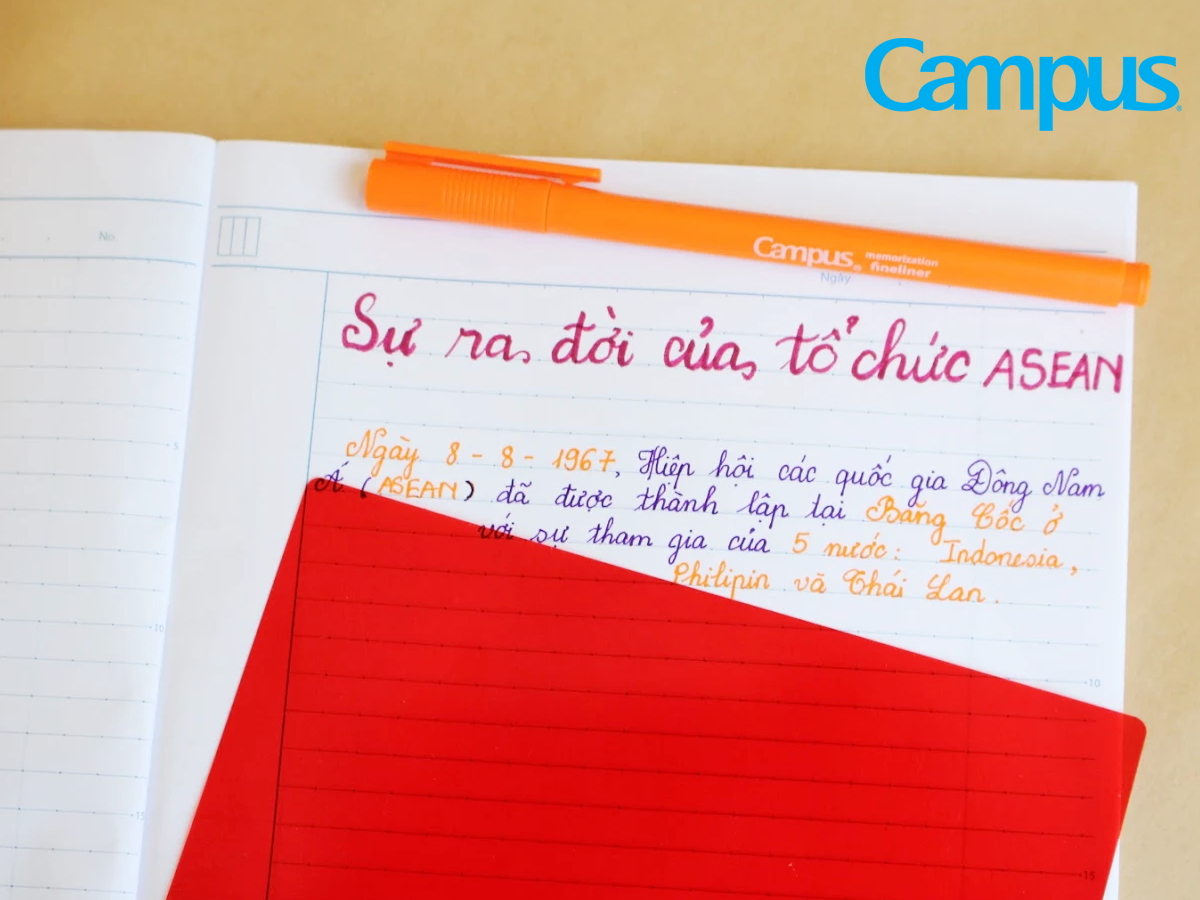 Campus
No.
Campus memorization fineliner
Ngày
Sự ra đời của tổ chức ASEAN
Ngày 8 - 8 - 1967, Hiệp hội các quốc gia Đông Nam
Á (ASEAN) đã được thành lập tại Băng Cốc ở
với sự tham gia của 5 nước: Indonesia,
Philipin và Thái Lan.
5
10
15
10
15